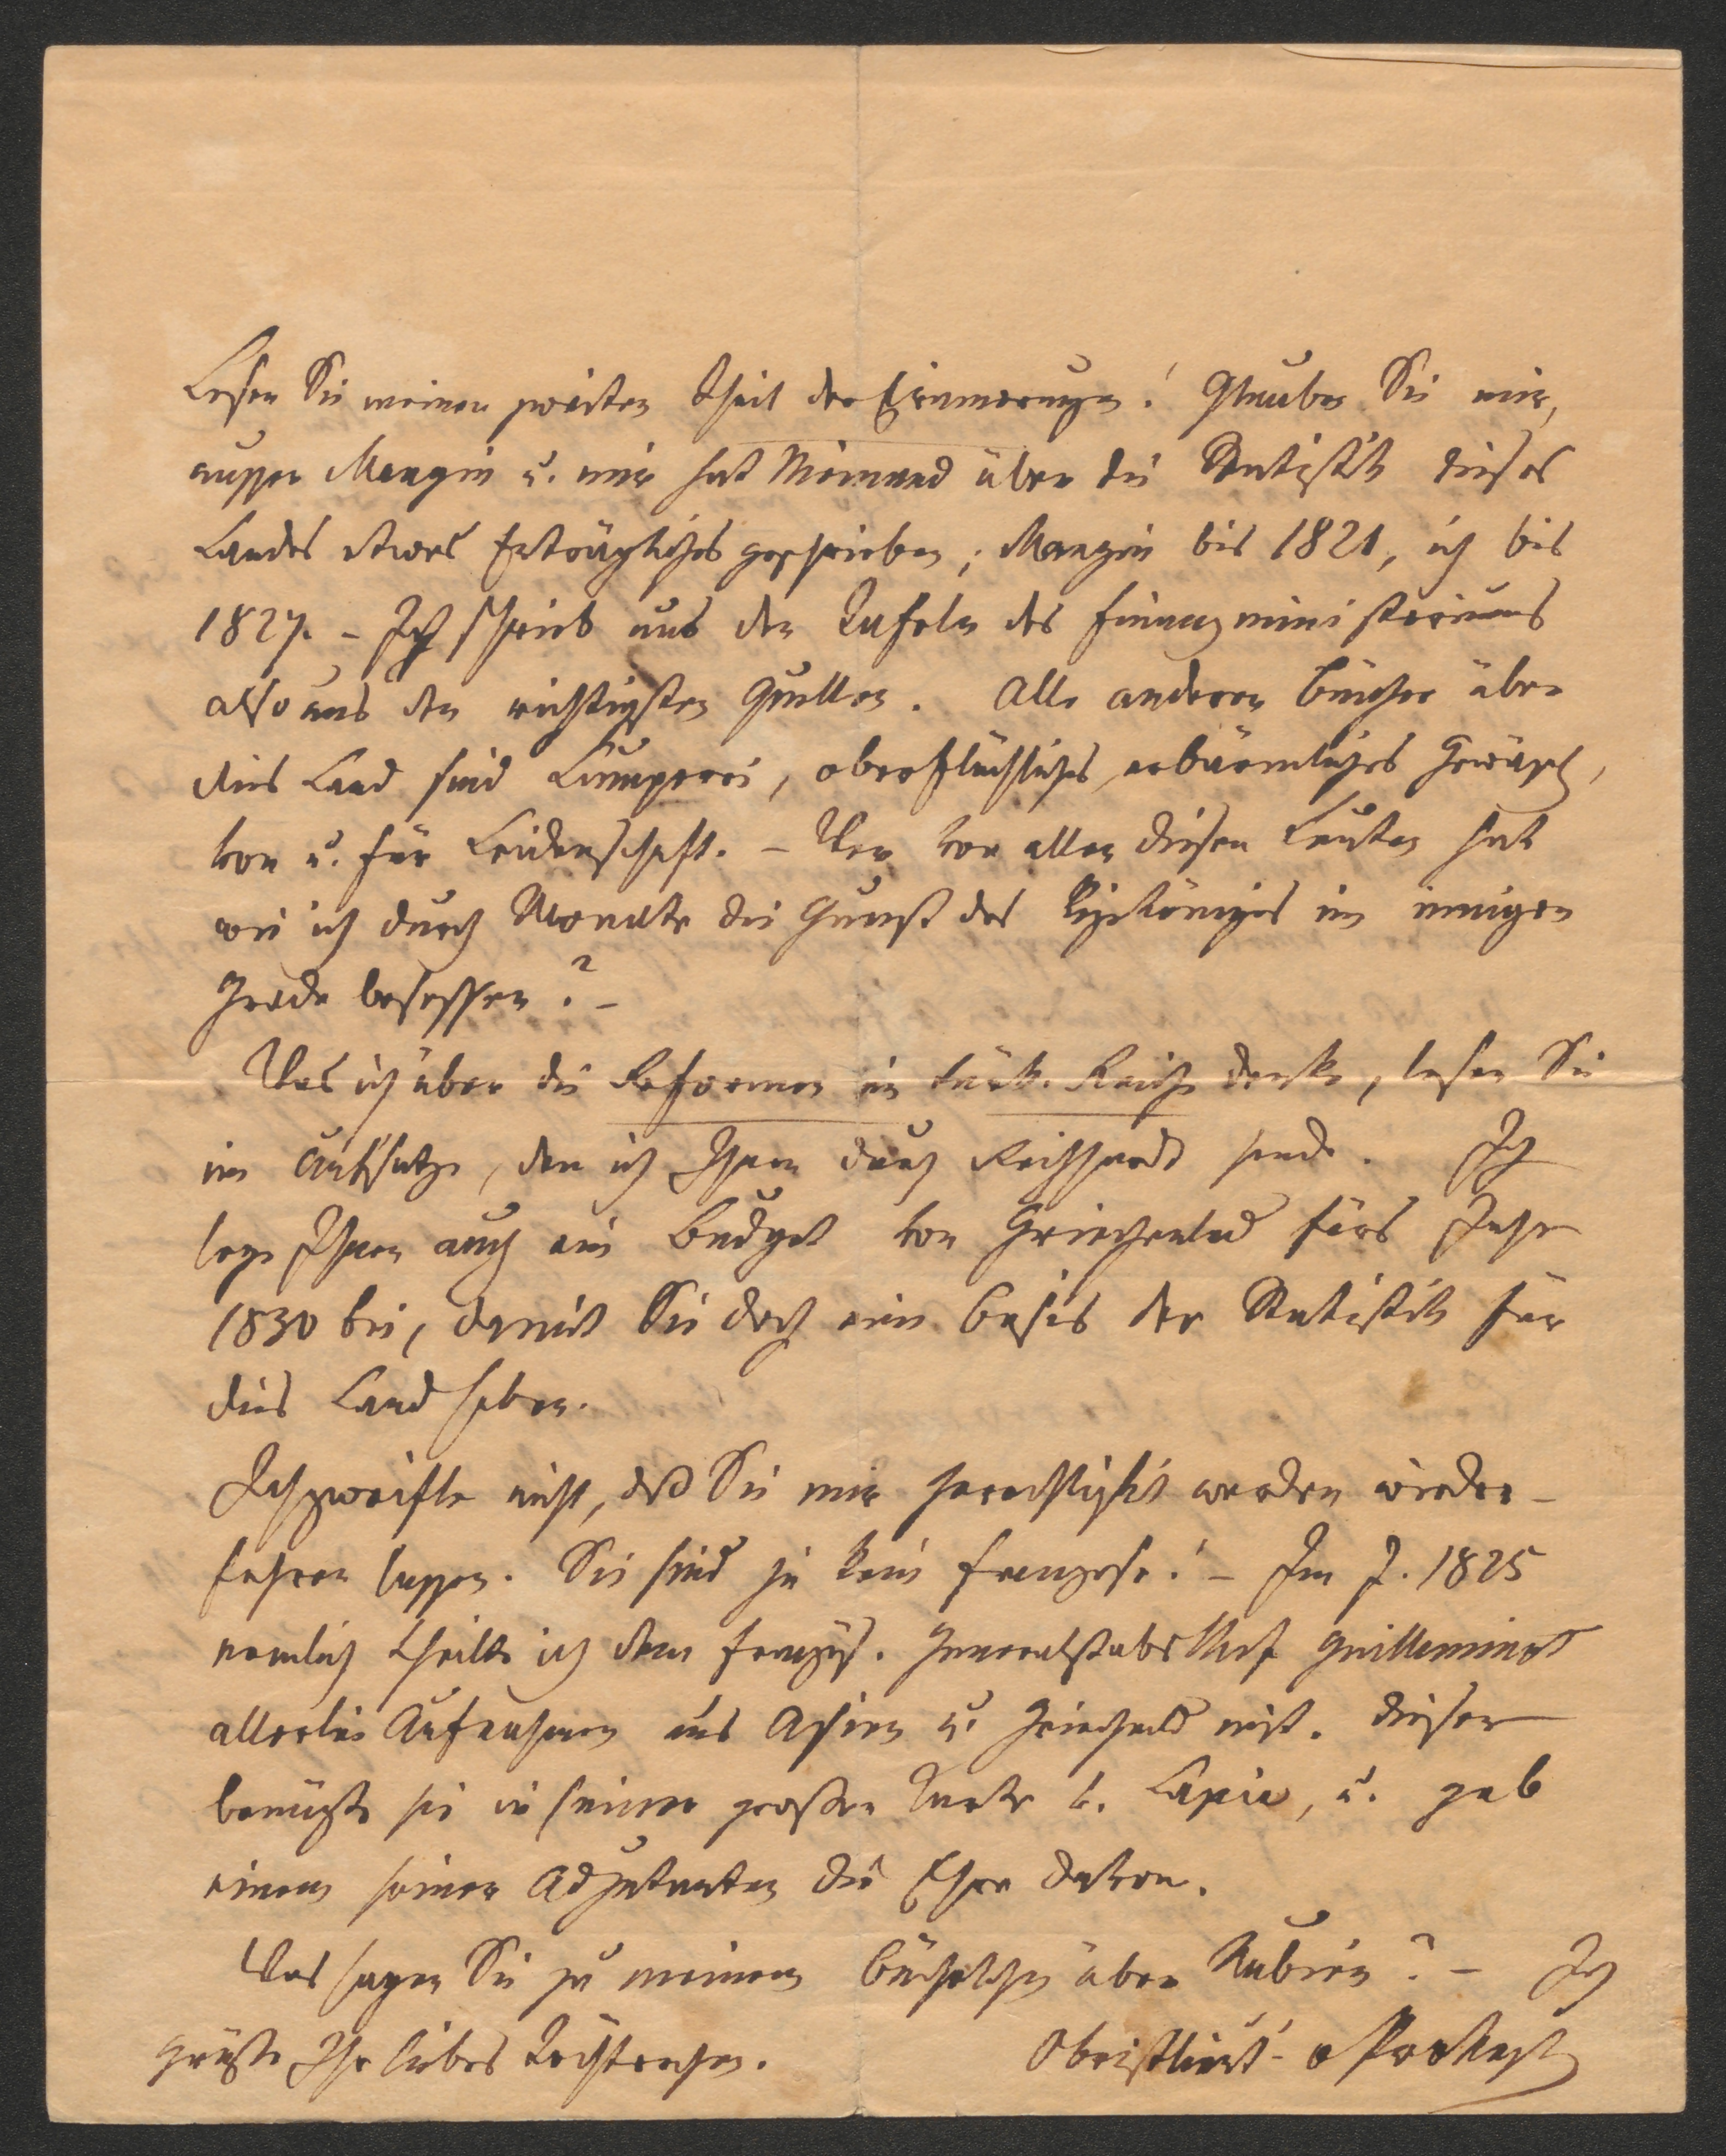 Lesen Sie meinen zweiten Theil der Erinnerungen! Glauben Sie mir,
ausser Mengin u. mir hat Niemand über die Statistik dieses
Landes etwas Erträgliches geschrieben; Mengin bis 1821, ich bis
1827. – Ich schrieb aus den Tafeln des Finanzministeriums
also aus den richtigsten Quellen. Alle anderen Bücher über
dies Land sind Lumperei, oberflächliches, erbärmliches Gewäsch,
von u. für Leidenschaft. – Wer von allen diesen Leuten hat
wie ich durch Monate die Gunst des Vizekönigs im innigen
Grade besessen? –
Was ich über die Reformen im türk. Reiche denke, lesen Sie
im Aufsatze, den ich Ihnen durch Reichhardt sende. Ich
lege Ihnen auch ein Budget von Griechenland fürs Jahr
1830 bei, damit Sie doch eine Basis der Statistik für
dies Land haben.
Ich zweifle nicht, daß Sie mir Gerechtigkeit werden wieder-
fahren lassen. Sie sind ja kein Franzose! – Im J. 1825
nemlich theilte ich dem französ. Generalstabschef Guilleminot
allerlei Aufnahmen aus Asien u. Griechenld mit. Dieser
benützte sie in seiner großen Karte v. Lapie, u. gab
einem seiner Adjutanten die Ehre davon.
Was sagen Sie zu meinem Büchelchen über Nubien? – Ich
grüße Ihr liebes Töchterchen. Obristlieut. v Prokesch